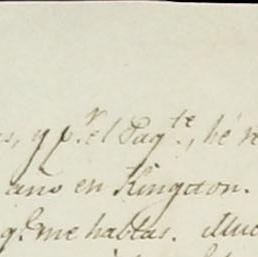 y p.r el Paq.te, hé
año en Kingston.
q.e me hablas. Muc